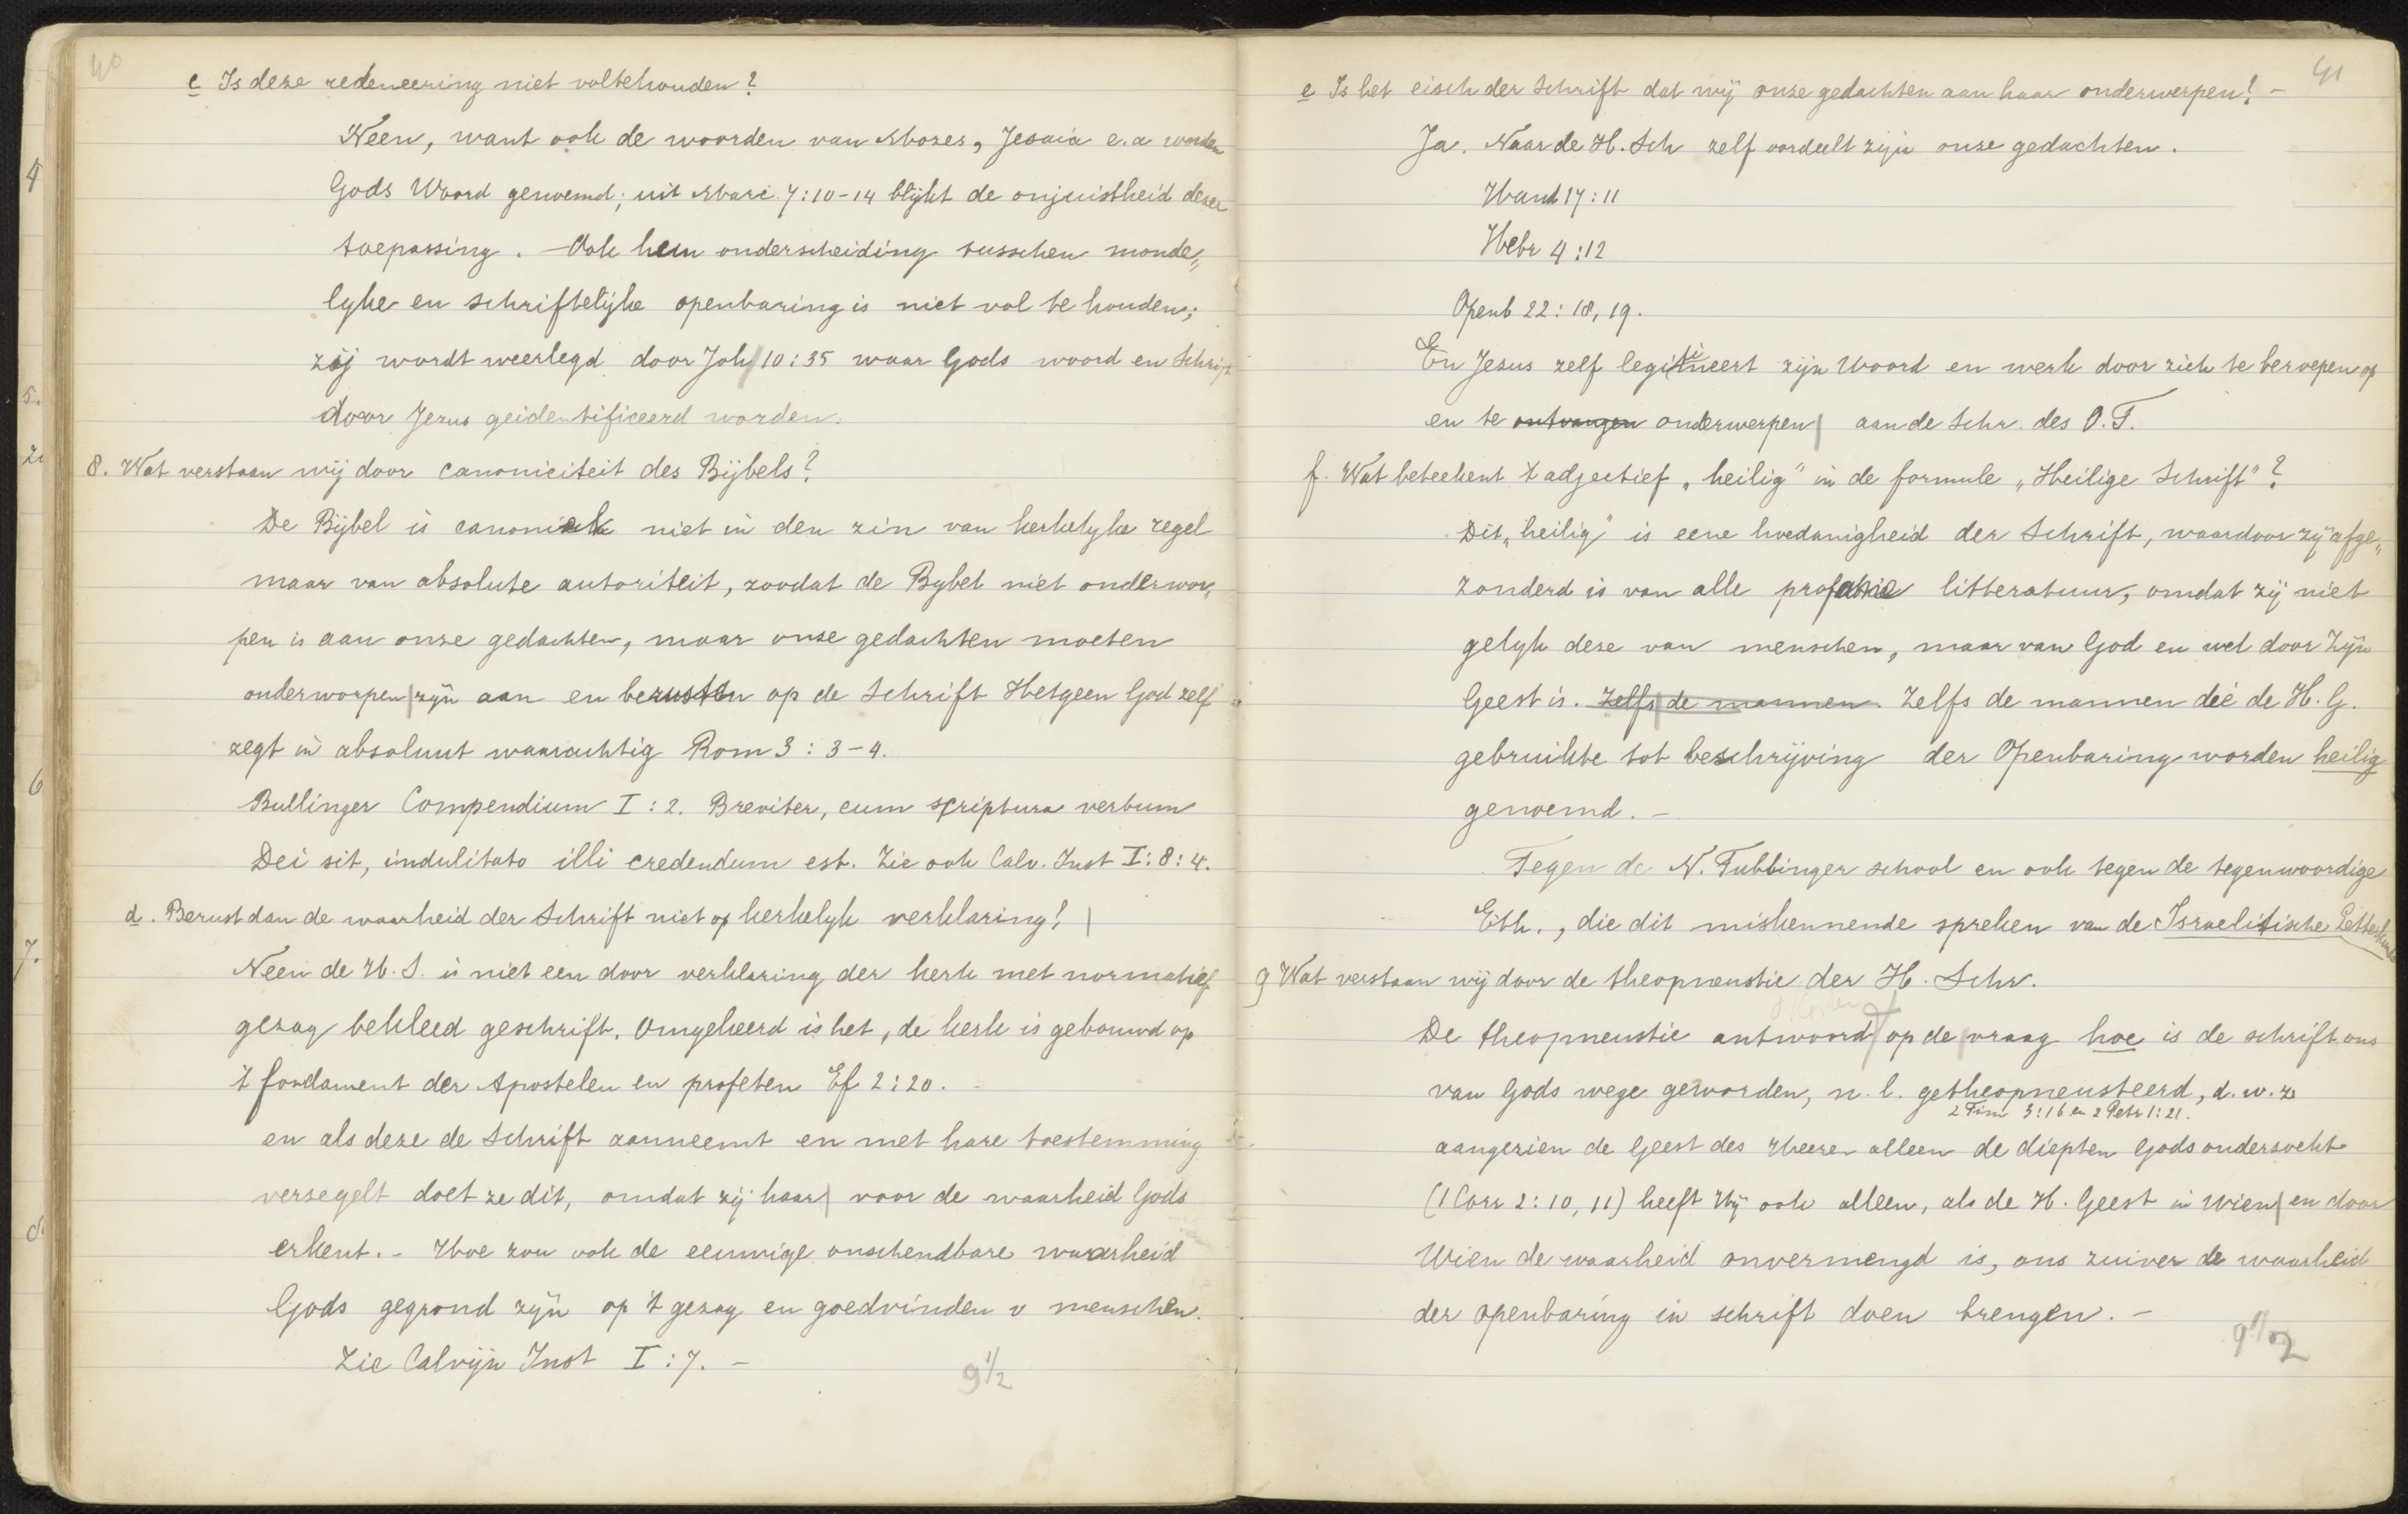 40
c Is deze redeneering niet voltehouden?
Neen, want ook de woorden van Mozes, Jesaia e.a worden
Gods Woord genoemd; uit Marc 7:10-14 blijkt de onjuistheid dezer
toepassing. - Ook hun onderscheiding tusschen monde„
lyke en schriftelijke openbaring is niet vol te houden;
zij wordt weerlegd door Joh 10:35 waar Gods woord en Schrift
door Jezus geidentificeerd worden.
8. Wat verstaan wij door canoniciteit des Bijbels?
De Bijbel is canoniek niet in den zin van kerkelyke regel
maar van absolute autoriteit, zoodat de Bybel niet onderwor„
pen is aan onze gedachten, maar onze gedachten moeten
onderworpen zijn aan en berusten op de Schrift Hetgeen God zelf
zegt is absoluut waarachtig Rom 3:3-4.
Bullinger Compendium I:2. Breviter, cum scriptura verbum
Dei sit, indulitato illi credendum est. Zie ook Calv. Inst I:8:4.
d. Berust dan de waarheid der Schrift niet op kerkelyk verklaring?
Neen de H.S. is niet een door verklaring der kerk met normatief
gezag bekleed geschrift. Omgekeerd is het, de kerk is gebouwd op
't fondament der Apostelen en profeten Ef 2:20.
en als deze de Schrift aanneemt en met hare toestemming
versegelt doet ze dit, omdat zij haar voor de waarheid Gods
erkent. - Hoe zou ook de eeuwige onschendbare waarheid
Gods gegrond zijn op 't gezag en goedvinden v menschen.
Zie Calvijn Inst I:7. -
9 1/2
41
e Is het eisch der Schrift dat wij onze gedachten aan haar onderwerpen? -
Ja. Naar de H. Sch zelf oordeelt zijn onze gedachten.
Hand 17:11
Hebr 4:12
Openb 22:18,19.
En Jezus zelf legitimeert zijn Woord en werk door zich te beroepen op
en te ontvangen onderwerpen aan de Schr. des O.T.
f. Wat beteekent 't adjectief „heilig" in de formule „Heilige Schrift"?
Dit „heilig" is eene hoedanigheid der Schrift, waardoor zij afge„
zonderd is van alle profane litteratuur, omdat zij niet
gelyk deze van menschen, maar van God en wel door Zijn
Geest is. Zelfs de mannen Zelfs de mannen die de H.G.
gebruikte tot beschrijving der Openbaring worden heilig
genoemd. -
Tegen de N. Tubbinger school en ook tegen de tegenwoordige
Eth., die dit miskennende spreken van de Israelitische Letterkunde
g Wat verstaan wij door de theopneustie der H. Schr.
De theopneustie antwoord op de vraag hoe is de schrift ons
van Gods wege geworden, n.l. getheopneusteerd, d.w.z
2 Tim 3:16 en 2 Petr 1:21.
aangezien de Geest des Heeren alleen de diepten Gods ondersoekt
(1 Corr 2:10,11) heeft Hij ook alleen, als de H. Geest in Wien en door
Wien de waarheid onvermengd is, ons zuiver de waarheid
der openbaring in schrift doen brengen. -
9 1/2